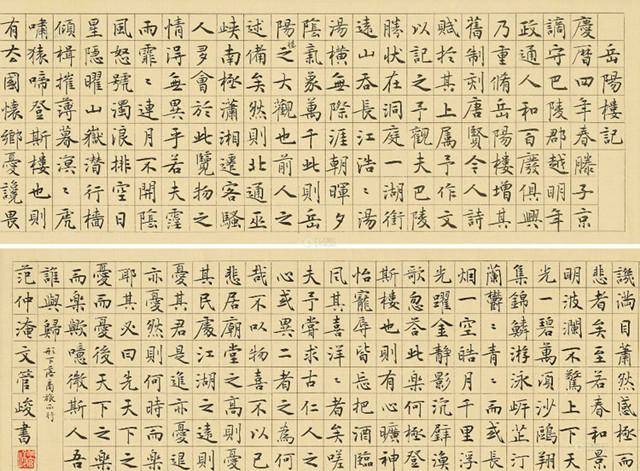 岳陽樓記
慶曆四年春滕子京
謫守巴陵郡越明年
政通人和百廢俱興
乃重脩岳陽樓增其
舊制刻唐賢今人詩
賦於其上屬予作文
以記之予觀夫巴陵
勝狀在洞庭一湖銜
遠山吞長江浩〻湯
湯橫無際涯朝暉夕
陰氣象萬千此則岳
陽樓之大觀也前人之
述備矣然則北通巫
峽南極瀟湘遷客騷
人多會於此覽物之
情得無異乎若夫霪
雨霏〻連月不開陰
風怒號濁浪排空日
星隱曜山嶽潛行檣
傾楫摧薄暮溟〻虎
嘯猿啼登斯樓也則
有去國懷鄉憂讒畏
譏滿目蕭然感極而
悲者矣至若春和景
明波瀾不驚上下天
光一碧萬頃沙鷗翔
集錦鱗游泳岸芷汀
蘭鬱〻青〻而或長
烟一空皓月千里浮
光躍金靜影沉璧漁
歌忽答此樂何極登
斯樓也則有心曠神
怡寵辱皆忘把酒臨
風其喜洋〻者矣嗟
夫予嘗求古仁人之
心或異二者之為何
哉不以物喜不以己
悲居廟堂之高則憂
其民處江湖之遠則
憂其君是進亦憂退
亦憂然則何時而樂
耶其必曰先天下之
憂而憂後天下之樂
而樂歟噫微斯人吾
誰與歸
范仲淹文管峻書